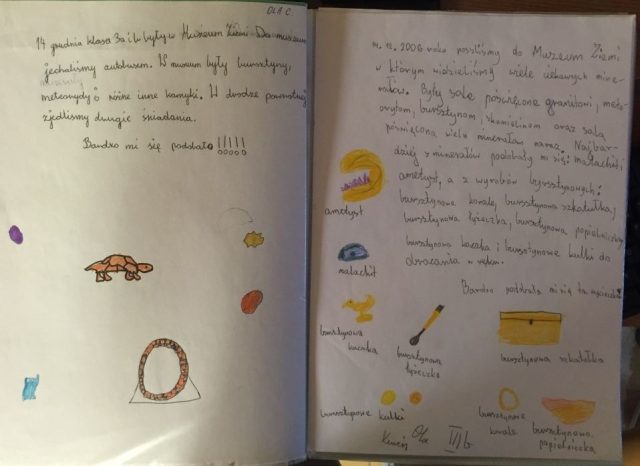 OLA C.
14 grudnia klasa 3a i b były w Muzeum Ziemi. Do muzeum
jechaliśmy autobusem. W muzeum były bursztyny,
meteoryty i różne inne kamyki. W drodze powrotnej
zjedliśmy drugie śniadanie.
Bardzo mi się podobało !!!!!
14.12.2006 roku poszliśmy do Muzeum Ziemi
w którym widzieliśmy wiele ciekawych mine-
rałów. Były sale poświęcone granitowi, mete-
orytom, bursztynom, skamielinom oraz sala
poświęcona wielu minerałom naraz. Najbar-
dziej z minerałów podobały mi się: malachit i
ametyst, a z wyrobów bursztynowych:
bursztynowe korale, bursztynowa szkatułka,
bursztynowa łyżeczka, bursztynowa popielniczka
bursztynowa kaczka i bursztynowe kulki do
obracania w ręku.
Bardzo podobała mi się ta wycieczka
ametyst
malachit
bursztynowa kaczka
bursztynowa łyżeczka
bursztynowa szkatułka
bursztynowe kulki
bursztynowe korale
bursztynowa popielniczka
Ola III b